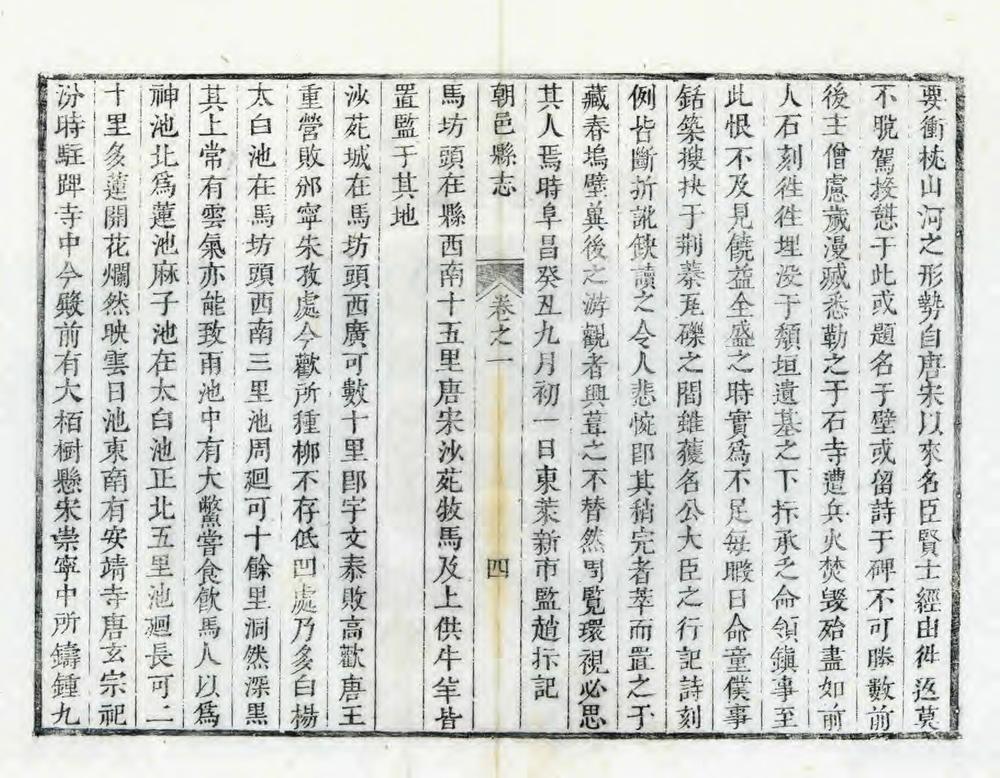 要衝枕山河之形勢自唐宋以來名臣賢士經由徃返莫
不脫駕授憇于此或題名于壁或留詩于碑不可勝數前
後主僧慮歲漫滅悉勒之于石寺遭兵火焚毀殆盡如前
人石刻徃徃埋没于頹垣遺基之下拆承乏命領鎮事至
此恨不及見饒益全盛之時實爲不足每暇日命童僕事
銛築搜抉于荆蓁瓦礫之間雖獲名公大臣之行記詩刻
例皆斷折訛缺讀之令人悲惋郎其稍完者萃而置之于
藏春塢壁冀後之游觀者興葺之不替然周覽環視必思
其人焉時阜昌癸丑九月初一日東萊新市監趙拆記
朝邑縣志 卷之一 四
馬坊頭在縣西南十五里唐宋沙苑牧馬及上供牛羊皆
置監于其地
沙苑城在馬坊頭西廣可數十里郎宇文泰敗高歡唐王
重營敗邠寧朱孜處今歡所種栁不存低凹處乃多白楊
太白池在馬坊頭西南三里池周廻可十餘里洞然深黒
其上常有雲氣亦能致雨池中有大鱉嘗食飲馬人以爲
神池北爲蓮池麻子池在太白池正北五里池廻長可二
十里多蓮開花爛然映雲日池東南有安靖寺唐玄宗祀
汾時駐蹕寺中今毀前有大栢樹懸宋崇寧中所鑄鍾九